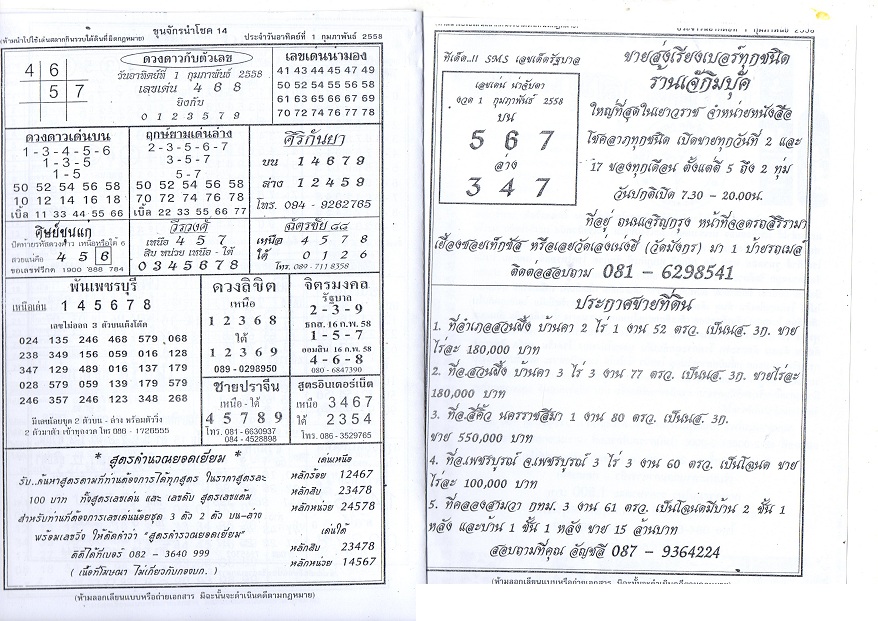 (ห้ามนำไปใช้เล่นสลากกินรวบได้ดินที่ผิดกฎหมาย) ขุนจักรนำโชค 14 ประจำวันอาทิตย์ที่ 1 กุมภาพันธ์ 2558
4 6
5 7
ดวงดาวกับตัวเลข
วันอาทิตย์ที่ 1 กุมภาพันธ์ 2558
เลขเด่น 4 6 8
ยิงกับ
0 1 2 3 5 7 9
เลขเด่นน่ามอง
41 43 44 45 47 49
50 52 54 55 56 58
61 63 65 66 67 69
70 72 74 76 77 78
ดวงดาวเด่นบน
1-3-4-5-6
1-3-5
1-5
50 52 54 56 58
10 12 14 16 18
เบิ้ล 11 33 44 55 66
ฤกษ์ยามเด่นล่าง
2-3-5-6-7
3-5-7
5-7
50 52 54 56 58
70 72 74 76 78
เบิ้ล 22 33 55 66 77
ศิริกันยา
บน 1 4 6 7 9
ล่าง 1 2 4 5 9
โทร. 094 - 9262765
ศิษย์ขุนแก่
ปิดท้ายรหัสดวงดาว เหนือหรือใต้ 6
สวยแน่คือ 4 5 6
ขอเลขฟรีกด 1900 888 784
วีรวงศ์
เหนือ 4 5 7
สิบ หน่วย เหนือ - ใต้
0 3 4 5 6 7 8
ฉัตรชัย ๘๘
เหนือ 4 5 7 8
ใต้ 0 1 2 6
โทร. 089 - 711 8358
พันเพชรบุรี
เหนือเด่น 1 4 5 6 7 8
เลขไม่ออก 3 ตัวบนแต็งโต๊ด
024 135 246 468 579 068
238 349 156 059 016 128
347 129 489 016 137 179
028 579 059 139 179 579
246 357 246 123 348 268
มีเลขน้อยชุด 2 ตัวบน - ล่าง พร้อมตัววิ่ง
2 ตัวมาตัว เข้าทุกงวด โทร 086 - 1720555
ดวงลิขิต
เหนือ
1 2 3 6 8
ใต้
1 2 3 6 9
089-0298950
จิตรมงคล
รัฐบาล
2-3-9
ธกส. 16 ก.พ. 58
1-5-7
ออมสิน 16 ก.พ. 58
4-6-8
080-6847390
ชายปราจีน
เหนือ - ใต้
4 5 7 8 9
โทร. 081 - 6630937
084 - 4528898
สูตรอินเตอร์เน็ต
เหนือ 3 4 6 7
ใต้ 2 3 5 4
โทร. 086 - 3529765
* สูตรคำนวณยอดเยี่ยม *
รับ..ค้นหาสูตรตามที่ท่านต้องการได้ทุกสูตร ในราคาสูตรละ
100 บาท ทั้งสูตรเลขเด่น และ เลขดับ สูตรเลขเต็ม
สำหรับท่านที่ต้องการเลขเด่นน้อยชุด 3 ตัว 2 ตัว บน-ล่าง
พร้อมเลขวิ่ง ให้ติดคำว่า "สูตรคำรวณยอดเยี่ยม"
ติดได้ที่เบอร์ 082 - 3640 999
( เนื้อที่โฆษณา ไม่เกี่ยวกับกองบก. )
เด่นเหนือ
หลักร้อย 12467
หลักสิบ 23478
หลักหน่วย 24578
เด่นใต้
หลักสิบ 23478
หลักหน่วย 14567
(ห้ามลอกเลียนแบบหรือถ่ายเอกสาร มิฉะนั้นจะดำเนินคดีตามกฎหมาย)
ทีเด็ด..!! SMS เลขเด็ดรัฐบาล
เลขเด่น น่าจับตา
งวด 1 กุมภาพันธ์ 2558
บน
5 6 7
ล่าง
3 4 7
ขายส่งเรียงเบอร์ทุกชนิด
ร้านเจ้กิมบุ้ค
ใหญ่ที่สุดในเยาวราช จำหน่ายหนังสือ
โชคลาภทุกชนิด เปิดขายทุกวันที่ 2 และ
17 ของทุกเดือน ตั้งแต่ตี 5 ถึง 2 ทุ่ม
วันปกติเปิด 7.30 - 20.00น.
ที่อยู่ ถนนเจริญกรุง หน้าที่จอดรถสิริรามา
เยื้องซอยเท็กซัส หรือเลยวัดเล่งเน่ยยี่ (วัดมังกร) มา 1 ป้ายรถเมล์
ติดต่อสอบถาม 081 - 6298541
ประกาศขายที่ดิน
1. ที่อำเภอสวนผึ้ง บ้านคา 2 ไร่ 1 งาน 52 ตรว. เป็นนส. 3ก. ขาย
ไร่ละ 180,000 บาท
2. ที่อ.สวนผึ้ง บ้านคา 3 ไร่ 3 งาน 77 ตรว. เป็นนส. 3ก. ขายไร่ละ
180,000 บาท
3. ที่อ.สีคิ้ว นครราชสีมา 1 งาน 80 ตรว. เป็นนส. 3ก.
ขาย 550,000 บาท
4. ที่อ.เพชรบูรณ์ จ.เพชรบูรณ์ 3 ไร่ 3 งาน 60 ตรว. เป็นโฉนด ขาย
ไร่ละ 100,000 บาท
5. ที่คลองสามวา กทม. 3 งาน 61 ตรว. เป็นโฉนดมีบ้าน 2 ชั้น 1
หลัง และบ้าน 1 ชั้น 1 หลัง ขาย 15 ล้านบาท
สอบถามที่คุณ อัญชลี 087 - 9364224
(ห้ามลอกเลียนแบบหรือถ่ายเอกสาร มิฉะนั้นจะดำเนินคดีตามกฎหมาย)